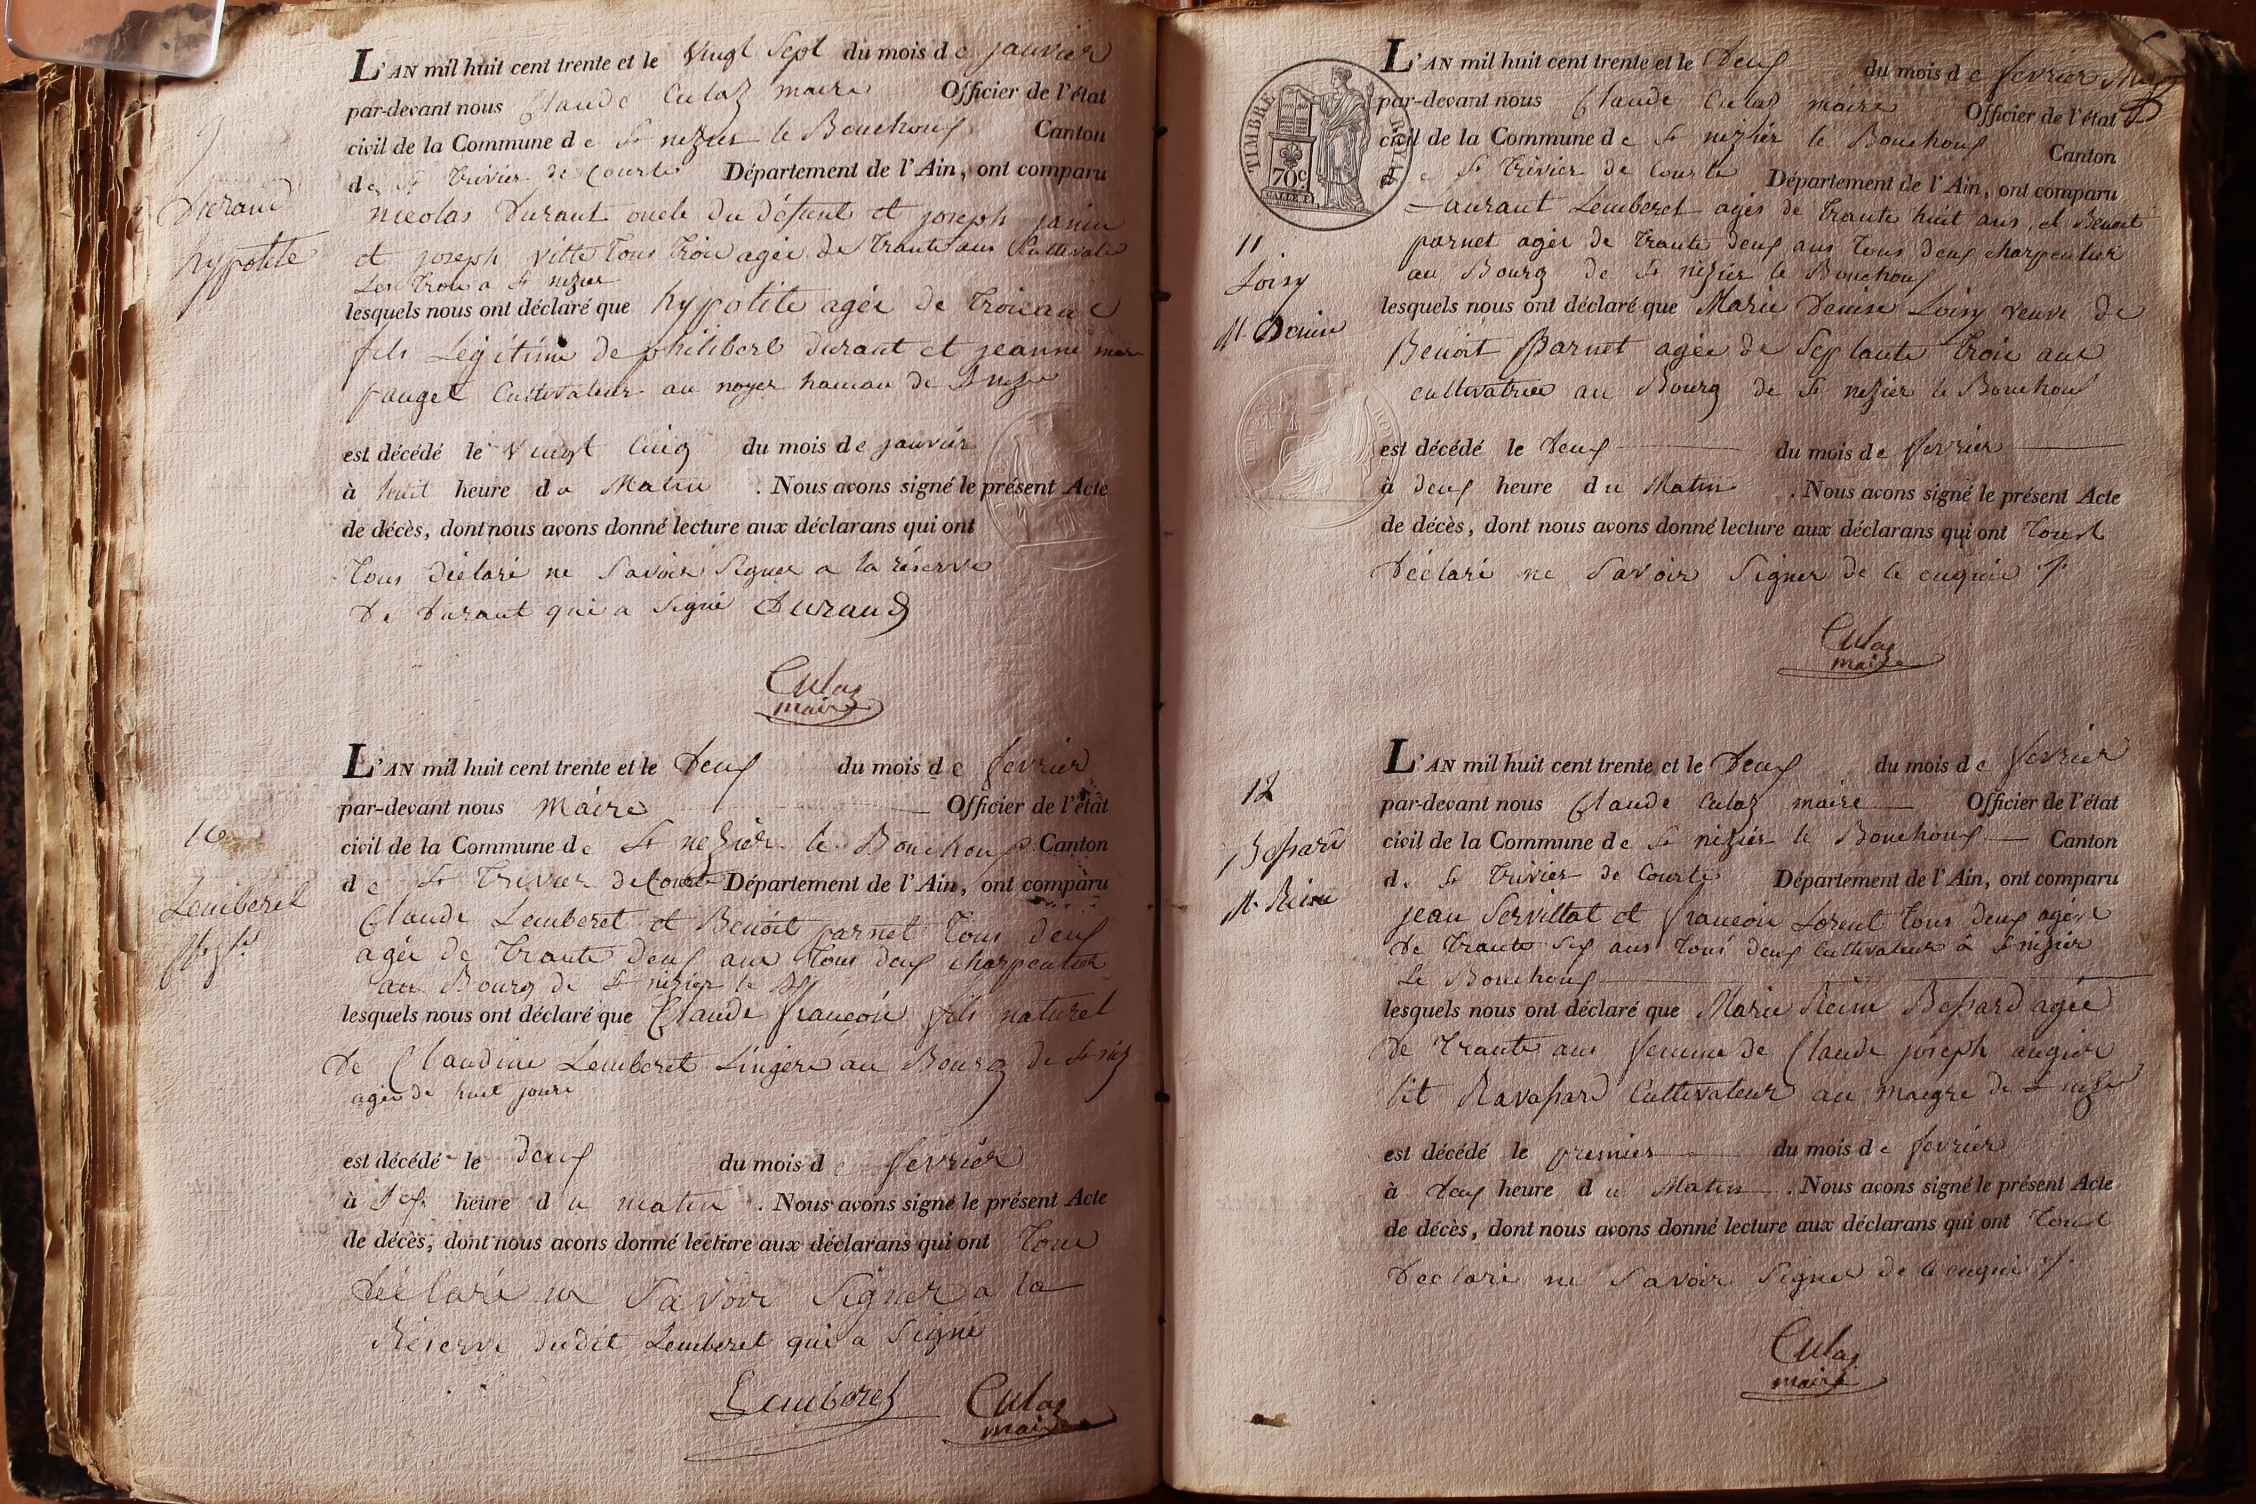 9
Durand
hypolite
L'AN mil huit cent trente et le Vingt Sept du mois de janvier
par-devant nous Claude Culaz maire Officier de l'état
civil de la Commune de St nezier le Bouchoux Canton
de St Trivier de Courte Département de l'Ain, ont comparu
nicolas Durant oncle du défunt et joseph janin
et joseph vitte Tous Troie agée de Trante ans Cultivate
Les Troie a St nezier
lesquels nous ont déclaré que hypolite agée de Troie ane
fils Legitime de philibert durant et jeanne marie
pauget Cultivateur au noyer hameau de St nezier
est décédé le vingt Cinq du mois de janvier
à huit heure du Matin . Nous avons signé le présent Acte
de décès, dont nous avons donné lecture aux déclarans qui ont
Tous déclaré ne Savoir Signer a la réserve
De Durant qui a Signé Durand
Culaz
maire
10
Lemberet
L'AN mil huit cent trente et le Deux du mois de fevrier
par-devant nous Maire Officier de l'état
civil de la Commune de St nezier le Bouchoux Canton
de St Trivier de Courte Département de l'Ain, ont comparu
Claude Lemberet et Benoit parnet Tous deux
agée de Trante deux ane Tous deux charpentier
au Bourg de St nizier le
lesquels nous ont déclaré que Claude françois fils naturel
De Claudine Lemberet Lingere au Bourg de St niz
agée de huit jours
est décédé le deux du mois de fevrier
à Sex heure du matin . Nous avons signé le présent Acte
de décès, dont nous avons donné lecture aux déclarans qui ont Tous
Déclaré ne Savoir Signer a la
Réserve dudit Lemberet qui a Signé
Lemberet Culaz
maire
TIMBRE ROYAL
70c
11
Loisy
M. Denise
L'AN mil huit cent trente et le Deux du mois de fevrier
par-devant nous Claude Culaz maire Officier de l'état
civil de la Commune de St nizier le Bouchoux Canton
de St Trivier de Courte Département de l'Ain, ont comparu
Laurant Lemberet agés de Trante huit ans, et Benoit
parnet agée de Trante deux ans Tous deux charpentier
au Bourg de St nizier le Bouchoux
lesquels nous ont déclaré que Marie Denise Loisy veuve de
Benoit Parnet agée de Septante Troie ane
cultivatrice au Bourg de St nezier le Bouchoux
est décédé le Deux du mois de fevrier
à deux heure du Matin . Nous avons signé le présent Acte
de décès, dont nous avons donné lecture aux déclarans qui ont Tous
Déclaré ne Savoir Signer de ce enquie
Culaz
maire
12
Bessard
M. Reine
L'AN mil huit cent trente et le Deux du mois de fevrier
par-devant nous Claude Culaz maire Officier de l'état
civil de la Commune de St nizier le Bouchoux Canton
de St Trivier de Courte Département de l'Ain, ont comparu
jean Servillat et françois Lorent Tous deux agée
De Trante Sex ans Tous deux Cultivateur à St nizier
Le Bouchoux
lesquels nous ont déclaré que Marie Reine Bessard agée
De Trante ans femme de Claude joseph
dit Ravassard Cultivateur au maigre de St nezier
est décédé le premier du mois de fevrier
à Deux heure du Matin . Nous avons signé le présent Acte
de décès, dont nous avons donné lecture aux déclarans qui ont Tous
Déclaré ne Savoir Signer de ce enquie
Culaz
maire